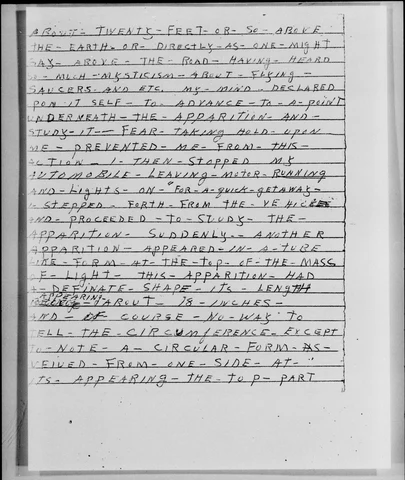 ABOUT - TWENTY - FEET - OR - SO - ABOVE
THE - EARTH - OR - DIRECTLY - AS - ONE - MIGHT
SAY - ABOVE - THE - ROAD - HAVING - HEARD
SO - MUCH - MYSTICISM - ABOUT - FLYING -
SAUCERS - AND ETC. MY - MIND - DECLARED
PON IT SELF - TO - ADVANCE - TO - A - POINT
UNDERNEATH - THE - APPARITION - AND -
STUDY - IT - FEAR - TAKING HOLD - UPON
ME - PREVENTED - ME - FROM - THIS -
ACTION - I - THEN - STOPPED MY
AUTOMOBILE - LEAVING - MOTOR - RUNNING
AND - LIGHTS - ON - "FOR - A - QUICK - GETAWAY -
I - STEPPED - FORTH - FROM THE - VEHICLE
AND - PROCEEDED - TO - STUDY - THE -
APPARITION - SUDDENLY - ANOTHER
APPARITION - APPEARED - IN - A - TUBE
LIKE - FORM - AT - THE - TOP - OF - THE - MASS
OF - LIGHT - THIS - APPARITION - HAD
A - DEFINATE - SHAPE - ITS - LENGTH
APPEARING
- ABOUT - 18 - INCHES -
AND - OF COURSE - NO - WAY TO
TELL - THE - CIRCUMFERENCE - EXCEPT
TO - NOTE - A - CIRCULAR - FORM - AS -
VEIVED - FROM - ONE - SIDE - AT - "
ITS - APPEARING - THE - TOP - PART